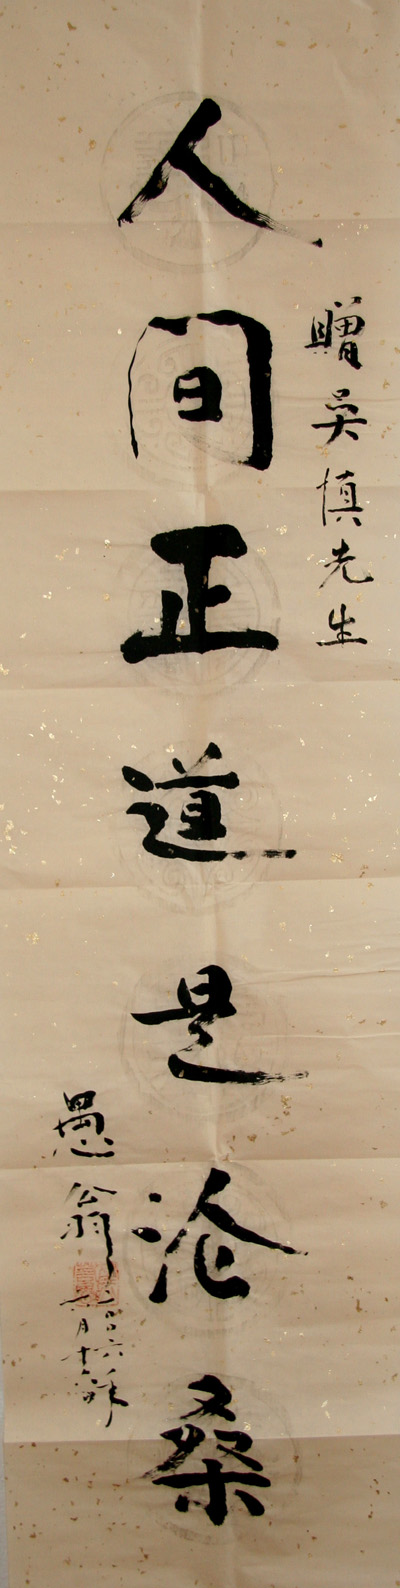 贈吴慎先生
人间正道是沧桑
愚翁